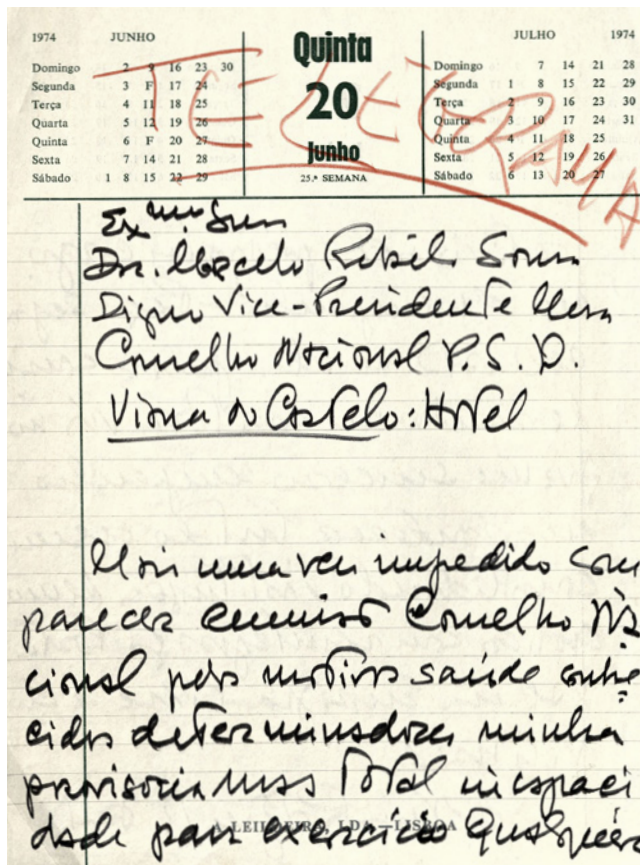 1974 JUNHO
Domingo 2 9 16 23 30
Segunda 3 F 17 24
Terça 4 11 18 25
Quarta 5 12 19 26
Quinta 6 F 20 27
Sexta 7 14 21 28
Sábado 1 8 15 22 29
Quinta
20
Junho
25.ª SEMANA
JULHO 1974
Domingo 7 14 21 28
Segunda 1 8 15 22 29
Terça 2 9 16 23 30
Quarta 3 10 17 24 31
Quinta 4 11 18 25
Sexta 5 12 19 26
Sábado 6 13 20 27
TELEGRAMA
Exmº. Snr
Dr. Marcelo Rebelo Sousa
Digno Vice-Presidente Mesa
Conselho Nacional P. S. D.
Viana do Castelo: Hotel
Mais uma vez impedido com
parecer Conselho Na
cional pelos motivos saúde conhe
cidos determinadores minha
provisoria mas total incapaci
dade para exercício qualquer
A LEILOEIRA, LDA.—LISBOA